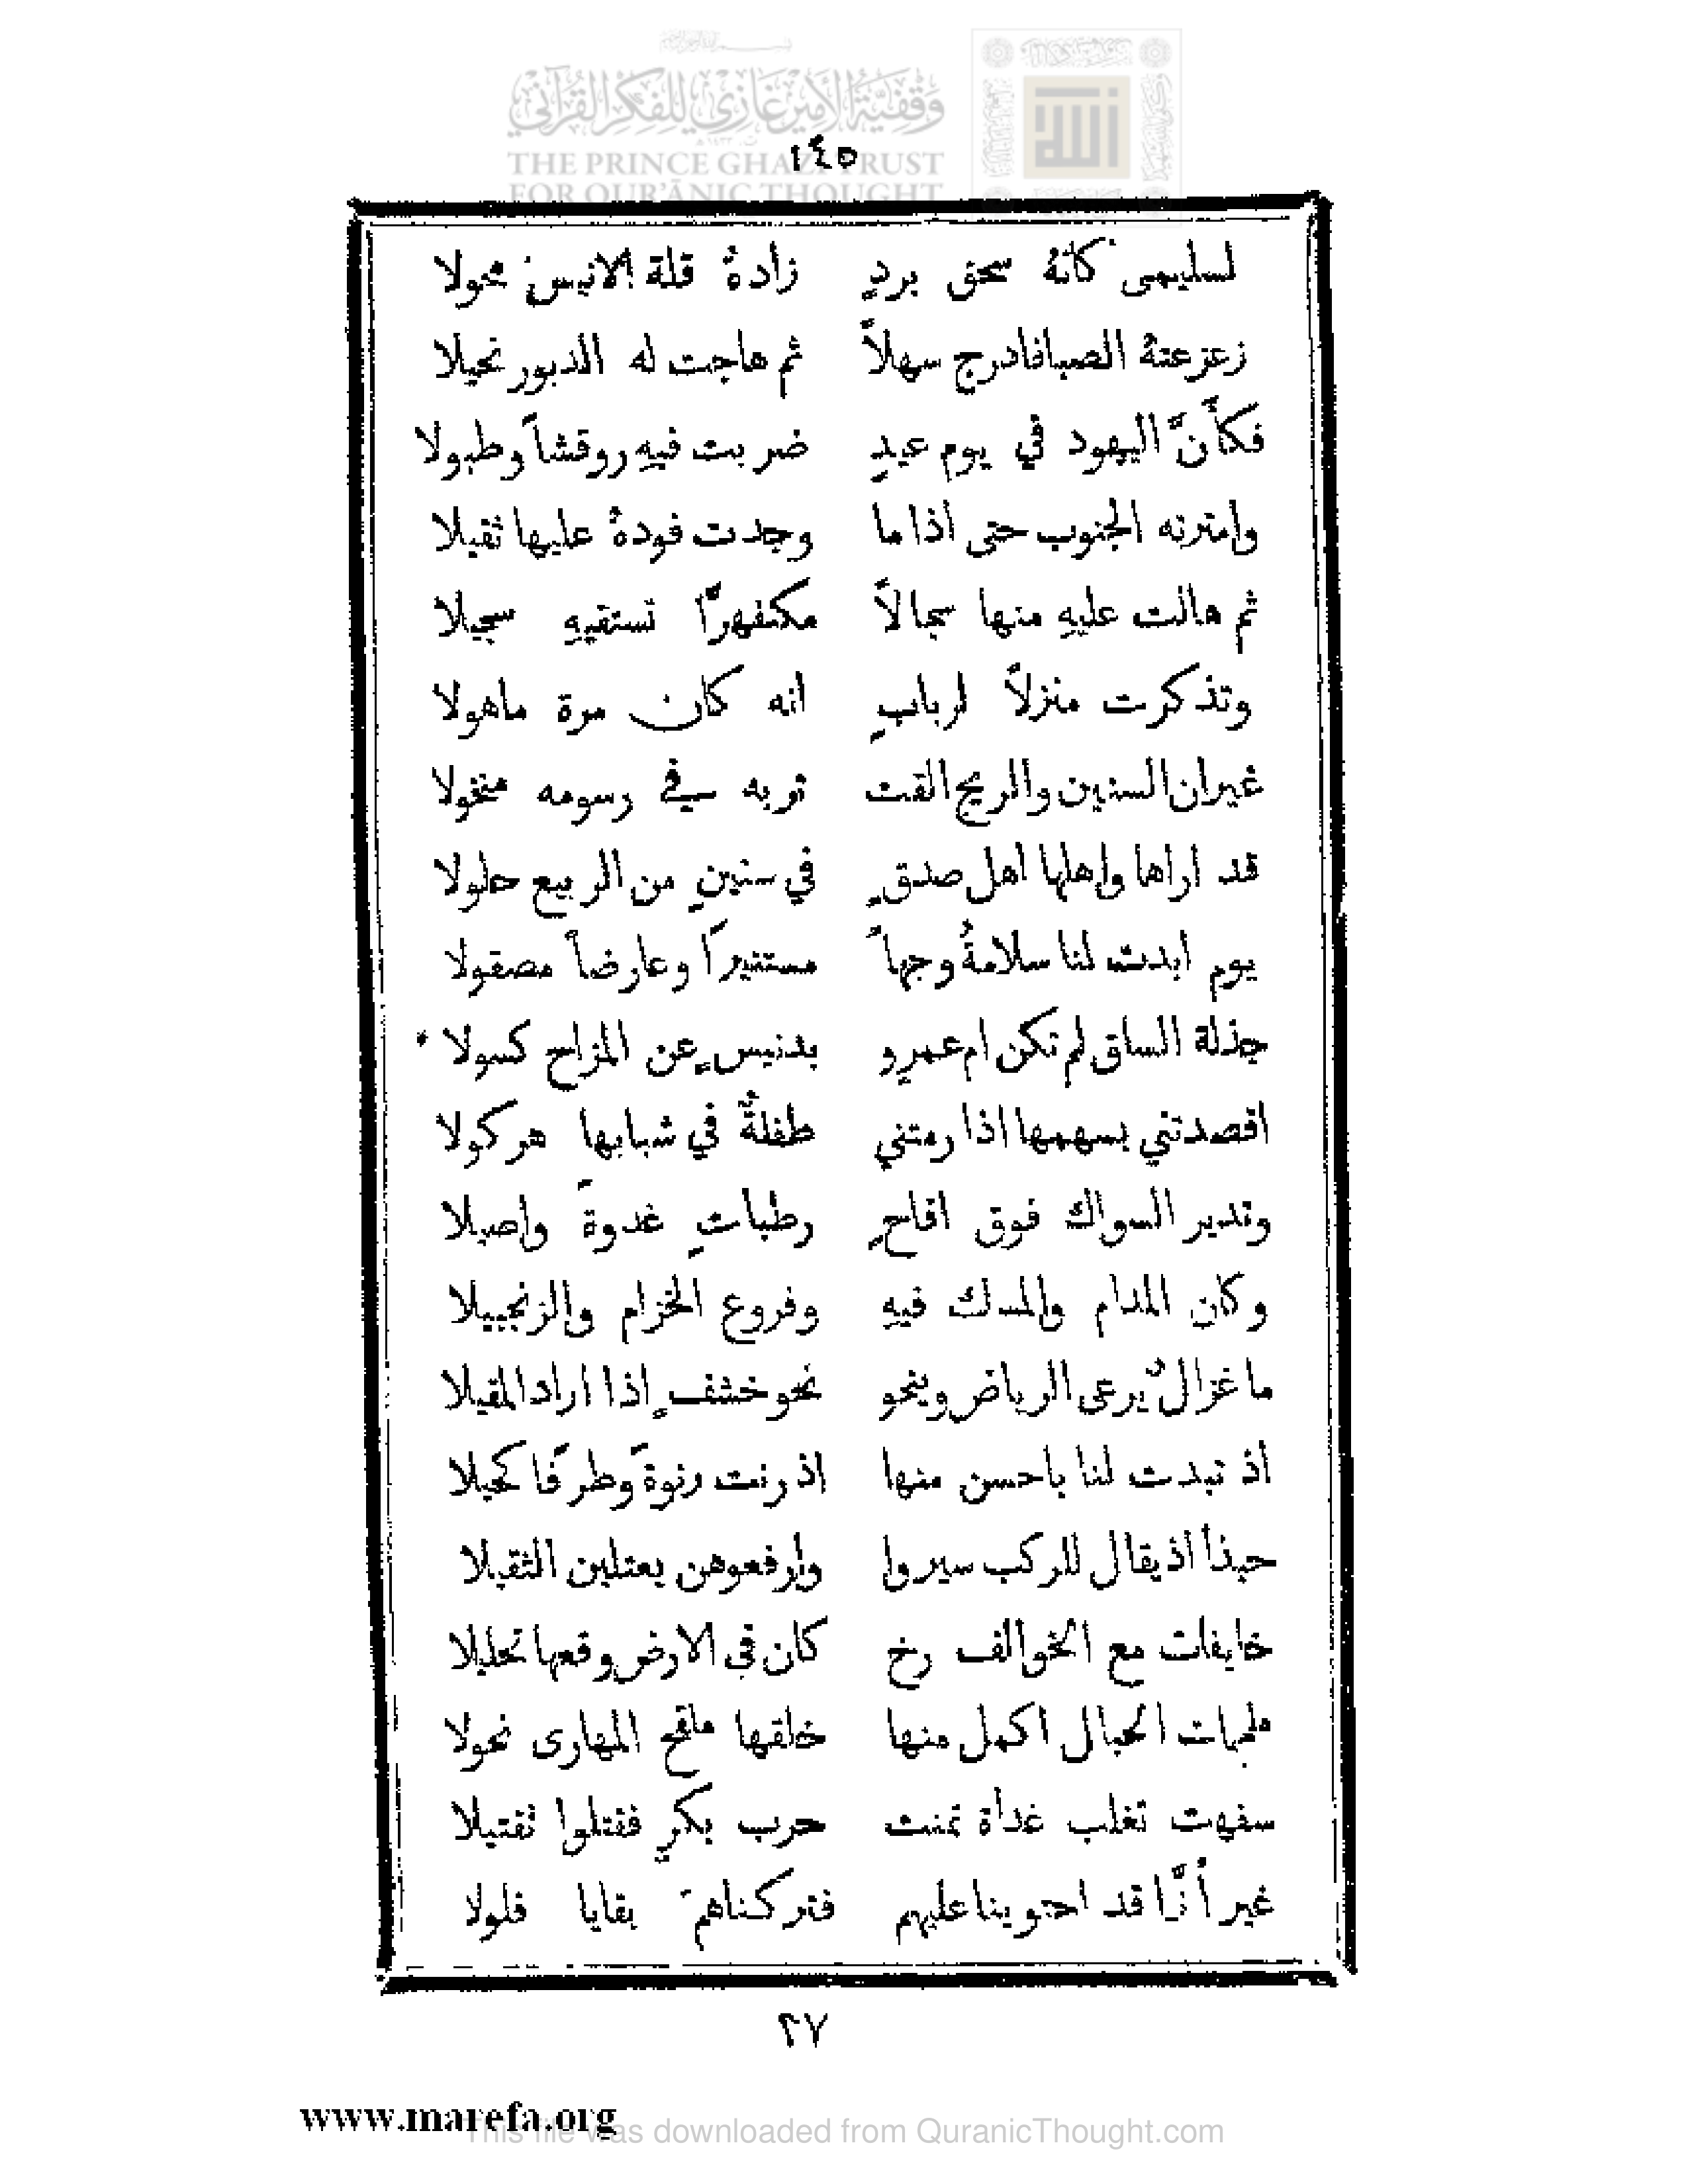 وقفية الأمير غازي للفكر القرآني
THE PRINCE GHAZI TRUST
FOR QUR'ĀNIC THOUGHT
١٤٥
لسليمى كانهُ سحق بردٍ زادهُ قلة الانيس محولا
زعزعتهُ الصبا فادرج سهلاً ثم هاجت له الدبور نحيلا
فكأَنَّ اليهود في يوم عيدٍ ضربت فيهِ روقشاً وطبولا
وامترته الجنوب حتى اذا ما وجدت فودهُ عليها ثقيلا
ثم هالت عليهِ منها سجالاً مكفهرًّا تستقيهِ سجيلا
وتذكرت منزلاً لربابٍ انه كان مرة ماهولا
غيران السنين والريح القت تربه في رسومه منخولا
قد اراها واهلها اهل صدقٍ في سنينٍ من الربيع حلولا
يوم ابدت لنا سلامةُ وجهاً مستنيراً وعارضاً مصقولا
جذلة الساق لم تكن ام عمرٍو بدنيسٍ عن المزاح كسولا
اقصدتني بسهمها اذا رمتني طفلةٌ في شبابها هركولا
وتدير السواك فوق اقاحٍ رطباتٍ غدوةً واصيلا
وكان المدام والمسك فيهِ وفروع الخزام والزنجبيلا
ما غزالٌ يرعى الرياض وينحو نحو خشفٍ اذا اراد المقيلا
اذ تبدت لنا باحسن منها اذ رنت رنوةً وطرفًا كحيلا
حبذا اذ يقال للركب سيروا وارفعوهن يعتلين الثقيلا
خايفات مع الخوالف رخ كان في الارض وقعها تحليلا
ملجبات الحبال اكمل منها خلقها ملقح المهارى نحولا
سفهت تغلب غداة تمنت حرب بكرٍ فقتلوا تقتيلا
غير أَنَّا قد احتوينا عليهم فتركناهم بقايا فلولا
٢٧
www.marefa.org
This file was downloaded from QuranicThought.com